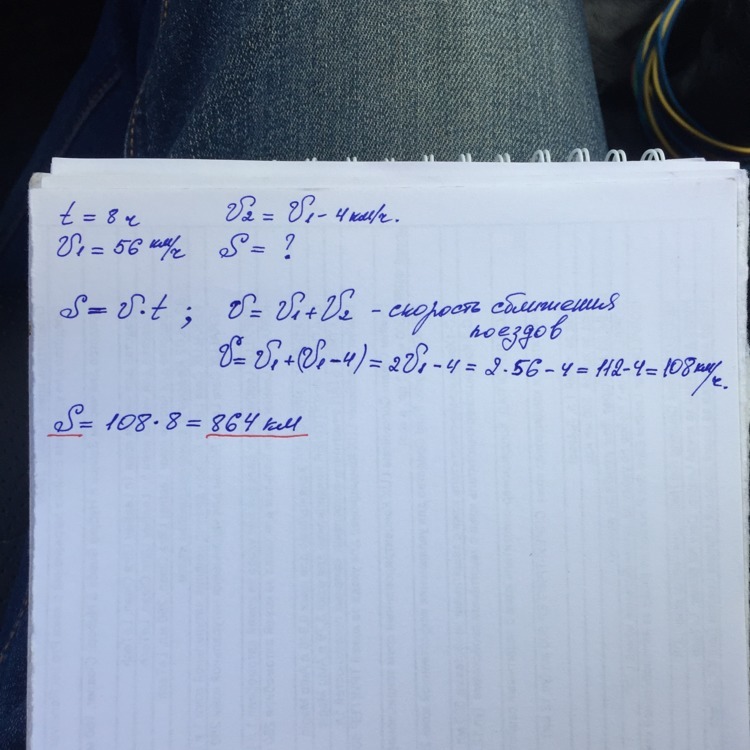 t = 8 ч
V2 = V1 - 4 км/ч.
V1 = 56 км/ч
S = ?
S = V·t ; V = V1 + V2 - скорость сближения
поездов
V = V1 + (V1 - 4) = 2V1 - 4 = 2·56 - 4 = 112 - 4 = 108 км/ч.
S = 108·8 = 864 км